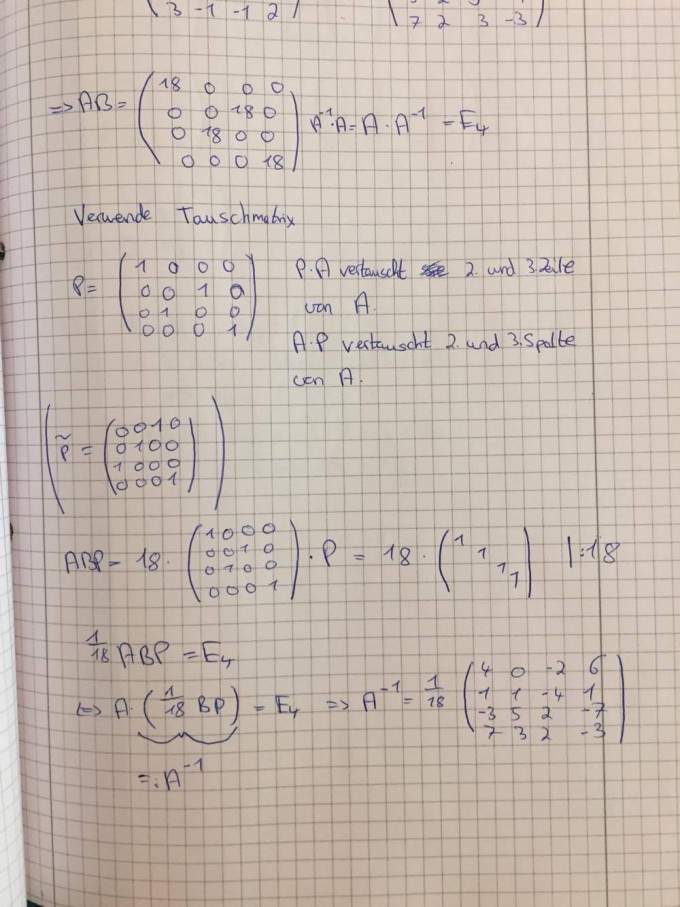 3 -1 -1 2
7 2 3 -3
⇒ AB = ( 18 0 0 0
0 0 18 0
0 18 0 0
0 0 0 18 ) A⁻¹·A = A·A⁻¹ = E₄
Verwende Tauschmatrix
P = ( 1 0 0 0
0 0 1 0
0 1 0 0
0 0 0 1 )
P·A vertauscht 2. und 3. Zeile
von A.
A·P vertauscht 2. und 3. Spalte
von A.
( P̃ = ( 0 0 1 0
0 1 0 0
1 0 0 0
0 0 0 1 ) )
ABP = 18 · ( 1 0 0 0
0 0 1 0
0 1 0 0
0 0 0 1 ) · P = 18 · ( 1 1 1 1 ) |:18
1/18 ABP = E₄
⇔ A·( 1/18 BP ) = E₄ ⇒ A⁻¹ = 1/18 ( 4 0 -2 6
1 1 -4 1
-3 5 2 -7
7 3 2 -3 )
=: A⁻¹